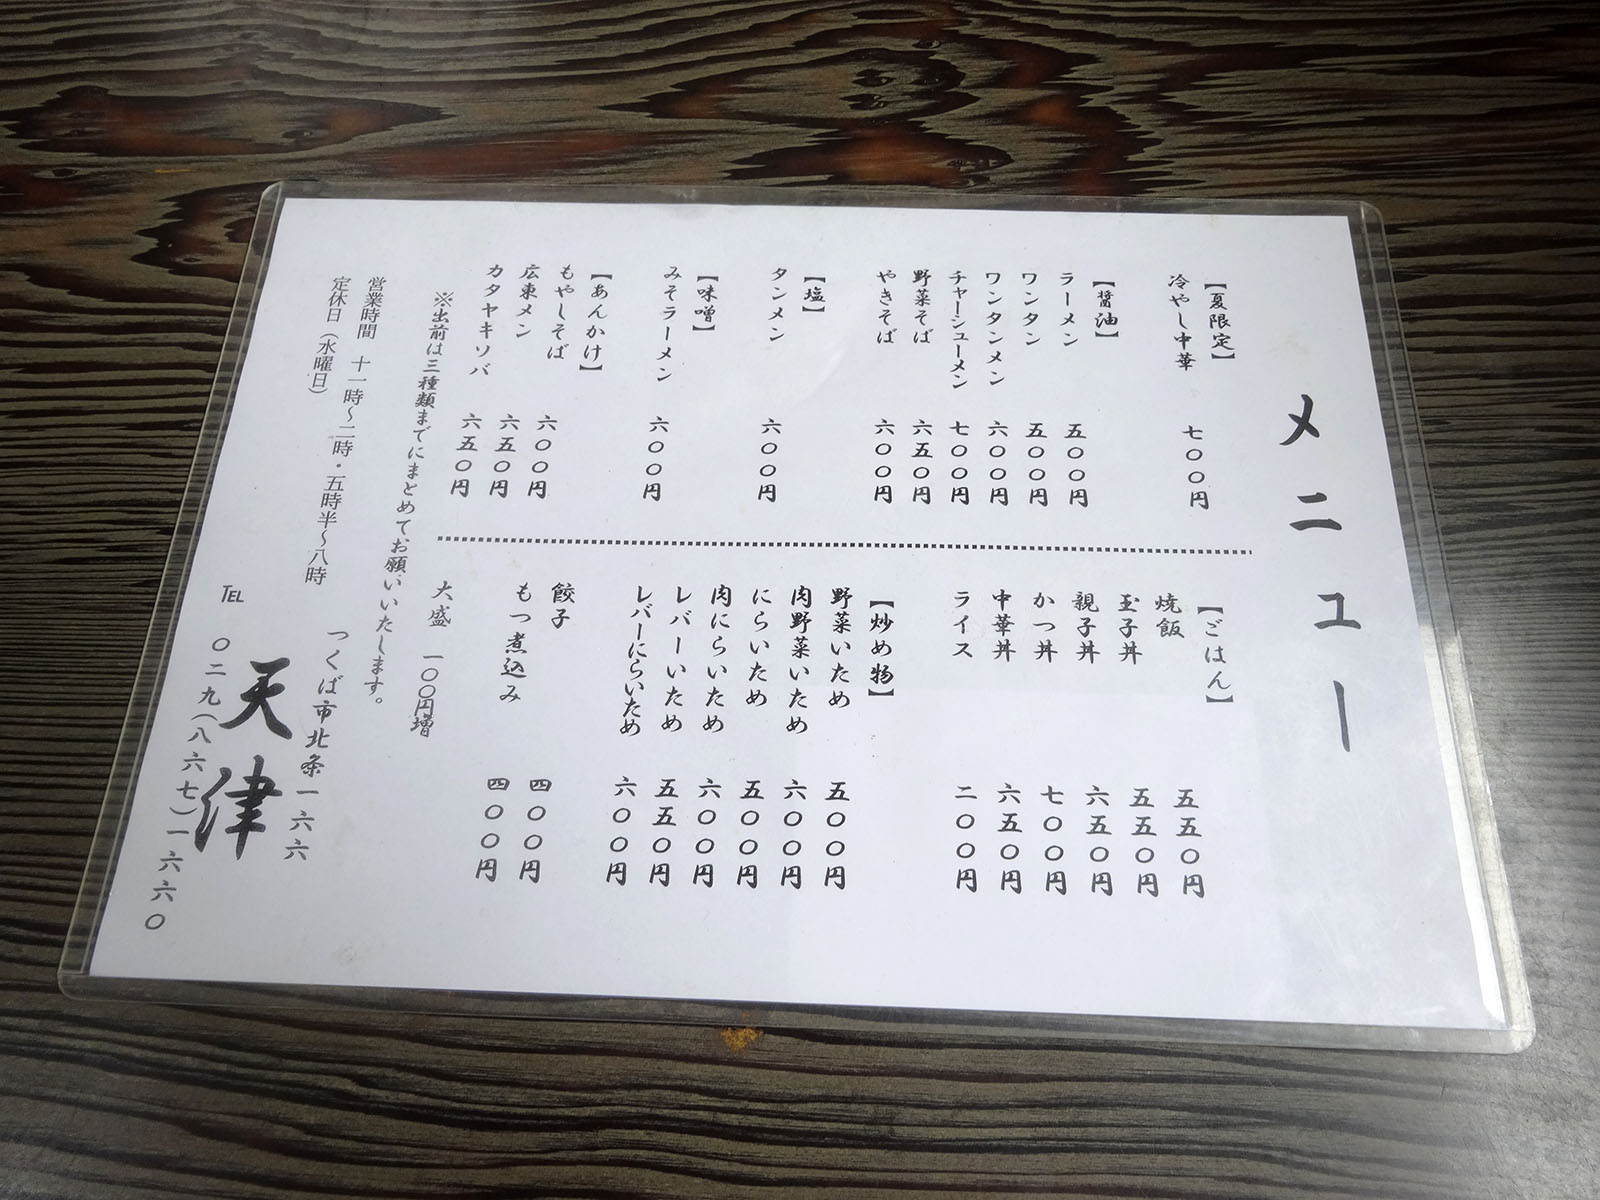 メニュー
【夏限定】
冷やし中華 七〇〇円
【醤油】
ラーメン 五〇〇円
ワンタン 五〇〇円
ワンタンメン 六〇〇円
チャーシューメン 七〇〇円
野菜そば 六五〇円
やきそば 六〇〇円
【塩】
タンメン 六〇〇円
【味噌】
みそラーメン 六〇〇円
【あんかけ】
もやしそば 六〇〇円
広東メン 六五〇円
カタヤキソバ 六五〇円
【ごはん】
焼飯 五五〇円
玉子丼 五五〇円
親子丼 六五〇円
かつ丼 七〇〇円
中華丼 六五〇円
ライス 二〇〇円
【炒め物】
野菜いため 五〇〇円
肉野菜いため 六〇〇円
にらいため 五〇〇円
肉にらいため 六〇〇円
レバーいため 五五〇円
レバーにらいため 六〇〇円
餃子 四〇〇円
もつ煮込み 四〇〇円
大盛 一〇〇円増
※出前は三種類までにまとめてお願いいたします。
営業時間 十一時～二時・五時半～八時
定休日（水曜日）
つくば市北条一六六
天津
TEL 〇二九（八六七）一六六〇